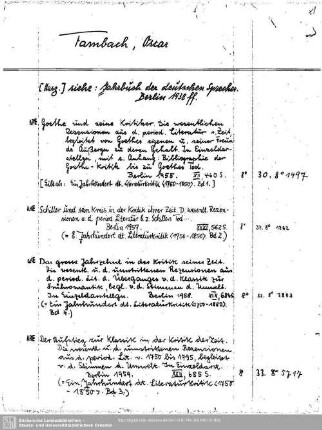 Fambach, Oscar
[Hrsg.] siehe: Jahrbuch der deutschen Sprache.
Berlin 1938 ff.
Goethe und seine Kritiker. Die wesentlichen
Rezensionen aus d. period. Literatur s. Zeit,
begleitet von Goethes eigenen u. seiner Freunde
Äußerungen zu deren Gehalt. In Einzeldar-
stellgn. mit e. Anhang: Bibliographie der
Goethe-Kritik bis zu Goethes Tod.
Berlin 1955. 460 S. 8° 30. 8° 1497
(Ein Jahrhundert dt. Literaturkritik (1750-1850). Bd 1.)
Schiller und sein Kreis in der Kritik ihrer Zeit. D. wesentl. Rezen-
sionen a. d. period. Literatur b. z. Schillers Tod
Berlin 1957. 562 S. 8°
(= E. Jahrhundert dt. Literaturkritik (1750-1850). Bd 2.)
Das grosse Jahrzehnt in der Kritik seiner Zeit.
Die wesentl. u. d. umstrittenen Rezensionen aus
d. period. Lit. d. Überganges v. d. Klassik zur
Frühromantik, begl. v. d. Stimmen d. Umwelt.
In Einzeldarstellgn. Berlin 1958. 8°
(= Ein Jahrhundert dt. Literaturkritik (1750-1850).
Bd 4.)
Der Aufstieg zur Klassik in der Kritik der Zeit.
Die wesentl. u. d. umstrittenen Rezensionen
aus d. period. Lit. v. 1750 bis 1795, begleitet
v. d. Stimmen d. Umwelt. In Einzeldarst.
Berlin 1959. 685 S. 8° 33. 8° 5717
(= Ein Jahrhundert dt. Literaturkritik (1750
- 1850). Bd 3.)
Sächsische Landesbibliothek -
Staats- und Universitätsbibliothek Dresden